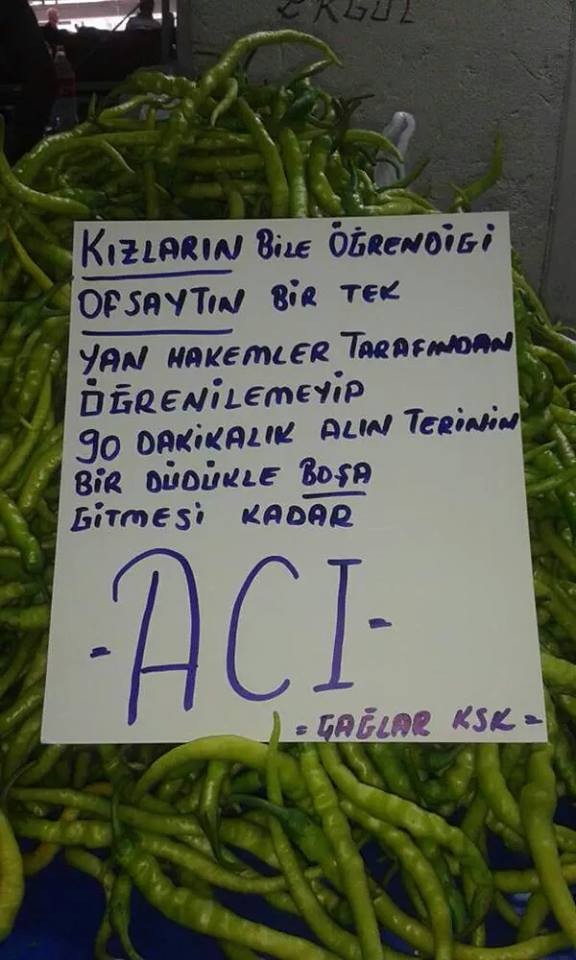 EKGÜL
KIZLARIN BİLE ÖĞRENDİĞİ
OFSAYTIN BİR TEK
YAN HAKEMLER TARAFINDAN
ÖĞRENİLEMEYİP
90 DAKİKALIK ALIN TERİNİN
BİR DÜDÜKLE BOŞA
GİTMESİ KADAR
-ACI-
= ÇAĞLAR KSK =